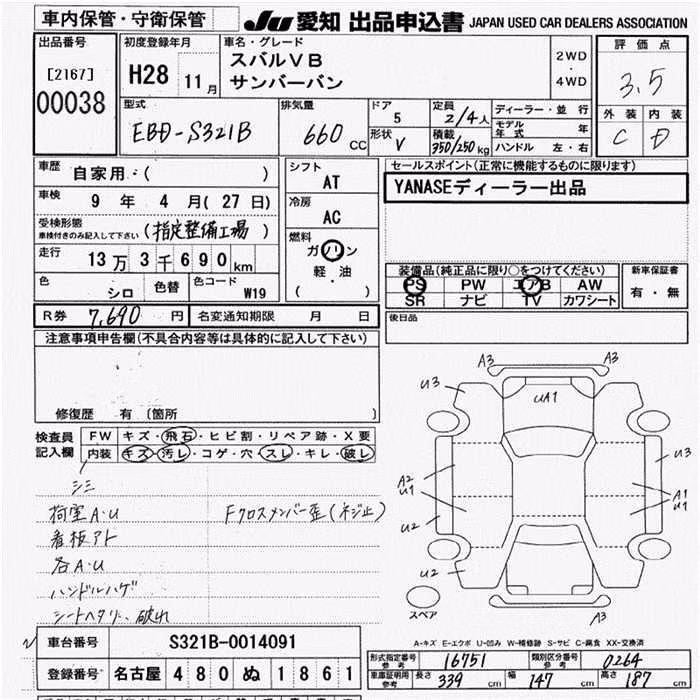 車内保管・守衛保管
JU 愛知 出品申込書 JAPAN USED CAR DEALERS ASSOCIATION
出品番号
[2167]
00038
初度登録年月
H28 11月
車名・グレード
スバルVB
サンバーバン
2WD
・
4WD
評価点
3.5
外装 内装
C D
型式
EBD-S321B
排気量
660 CC
ドア
5
形状
V
定員
2/4人
積載
350/250kg
ディーラー・並行
モデル年式 年
ハンドル 左・右
車歴
自家用・( )
車検
9年 4月(27日)
受検形態
車検付きのみ記入して下さい
(指定整備工場)
走行
13万3千690km
色
シロ
色替
色コード
W19
シフト
AT
冷房
AC
燃料
ガソリン
軽・油
( )
セールスポイント(正常に機能するものに限ります)
YANASEディーラー出品
装備品(純正品に限り○をつけてください)
PS PW エアB AW
SR ナビ TV カワシート
新車保証書
有・無
R券 7,690円
名変通知期限 月 日
後日品
注意事項申告欄(不具合内容等は具体的に記入して下さい)
修復歴 有 (箇所 )
検査員
記入欄
FW キズ・飛石・ヒビ割・リペア跡・X要
内装 キズ・汚レ・コゲ・穴・スレ・キレ・破レ
シミ
荷室A・U
Fクロスメンバー歪(ネジ止)
看板アト
各A・U
ハンドルハゲ
シートヘタリ、破れ
A3 A3
U3
UA1
U3
A2
U1
A1
U1
U2
U2
スペア
A3
A-キズ E-エクボ U-凹み W-補修跡 S-サビ C-腐食 XX-交換済
車台番号 S321B-0014091
登録番号 名古屋 480 ぬ 1861
形式指定番号
参考
16751
類別区分番号
参考
0264
車庫証明用
参考
長さ 339cm
幅 147cm
高さ 187cm